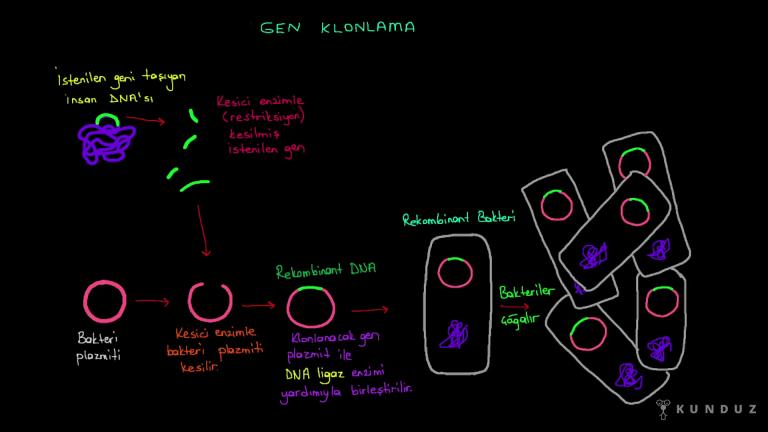 GEN KLONLAMA
İstenilen geni taşıyan
insan DNA'sı
Kesici enzimle
(restriksiyon)
kesilmiş
istenilen gen
Rekombinant Bakteri
Rekombinant DNA
Bakteriler
çoğalır
Bakteri
plazmiti
Kesici enzimle
bakteri plazmiti
kesilir.
Klonlanacak gen
plazmit ile
DNA ligaz enzimi
yardımıyla birleştirilir.
KUNDUZ